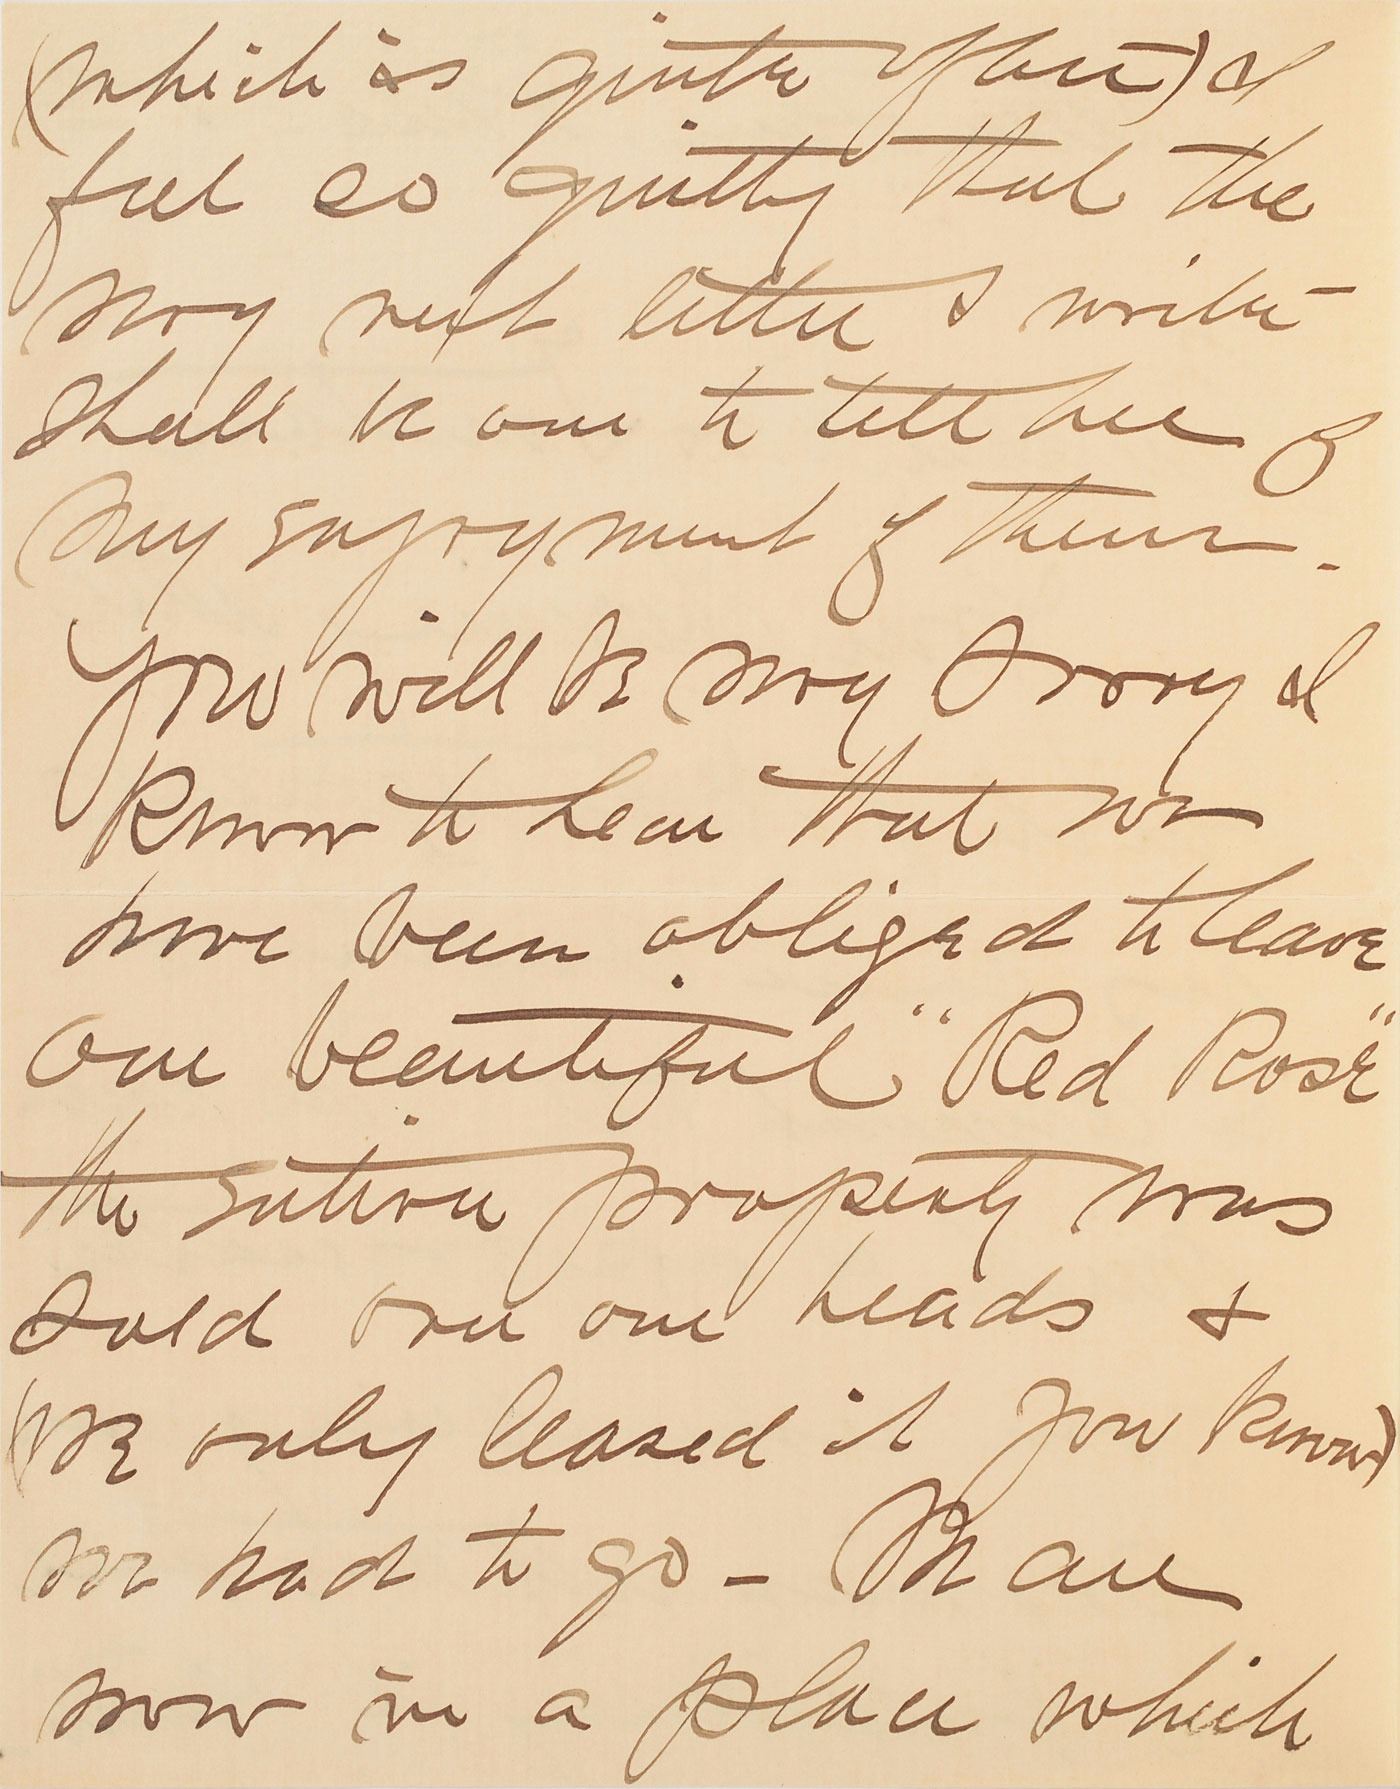 (which is quite often) I
feel so guilty that the
very next letter I write
shall be one to tell her of
my enjoyment of them.
You will be very sorry I
know to hear that we
have been obliged to leave
our beautiful "Red Rose"
the entire property was
sold over our heads &
(we only leased it you know)
we had to go – We are
now in a place which